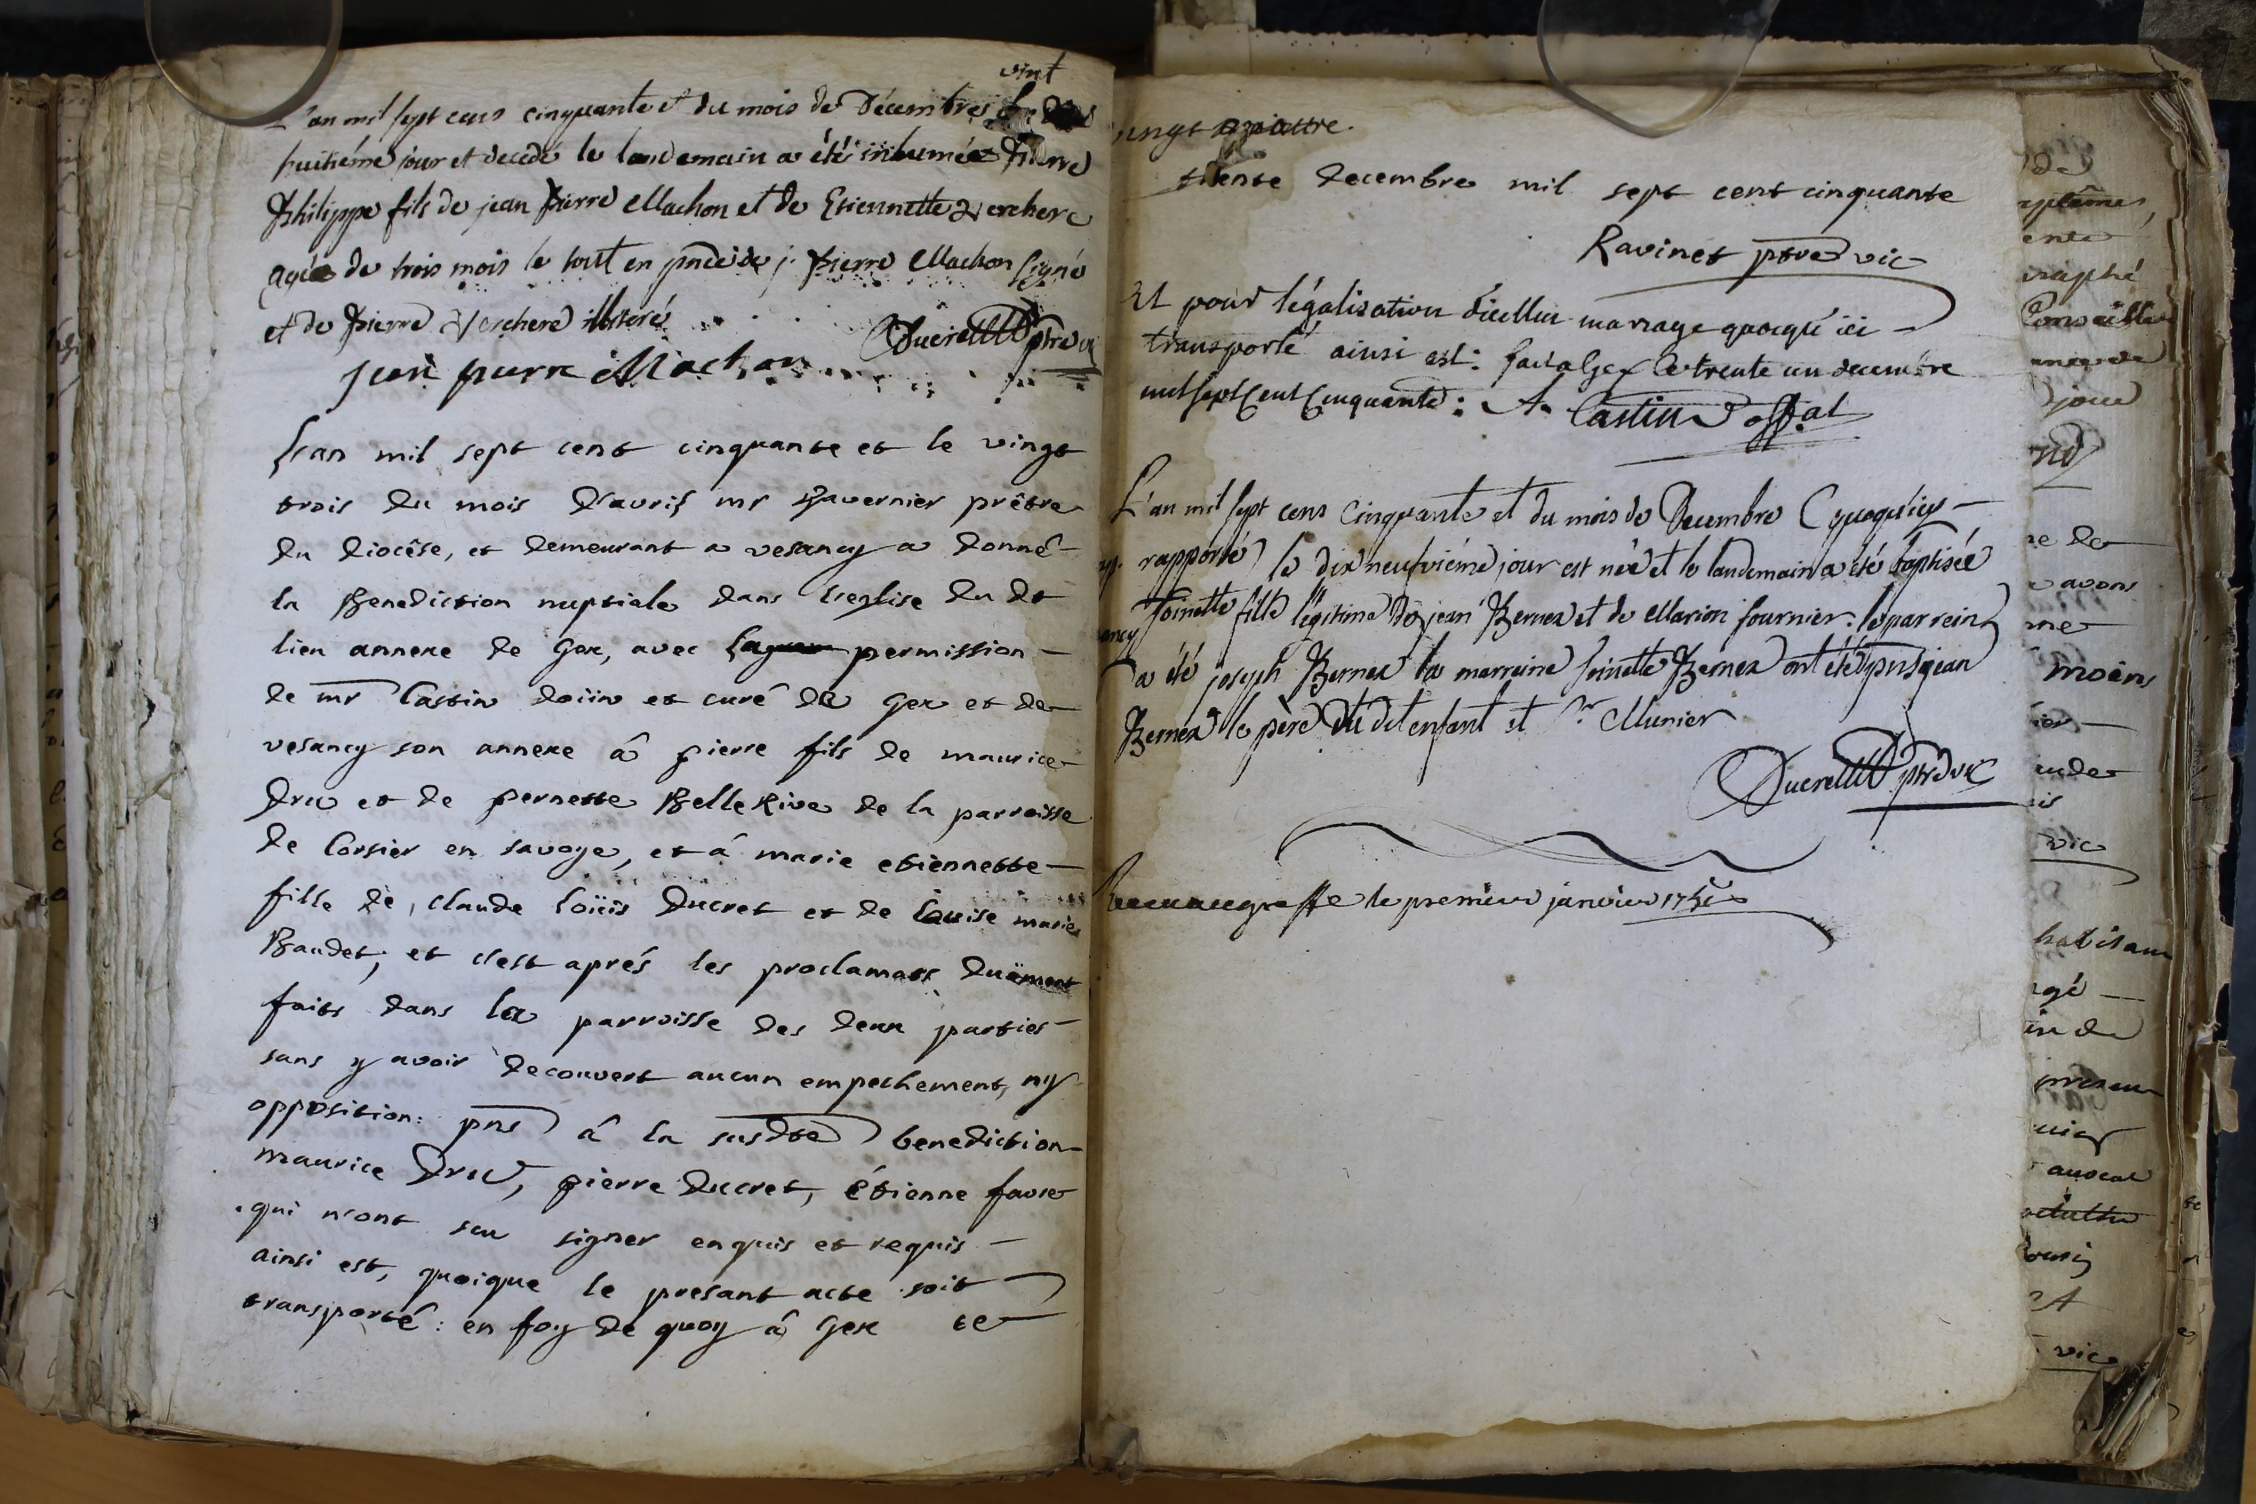 vint
L'an mil sept cens cinquante et du mois de Décembres le
huitiéme jour et decedé le landemain a été inhumée Pierre
Philippe fils de jean Pierre Machon et de Etiennette Verchere
agée de trois mois le tout en pnce de j. Pierre Machon signé
et de Pierre Verchere illiteré
Ducret ptre vic
jean pierre Machon
L'an mil sept cent cinquante et le vingt
trois du mois d'avril mr Tavernier prêtre
du diocêse, et demeurant a vesancy a donné
la Benediction nuptiale dans l'eglise du dt
lieu annexe de Gex, avec permission
de mr Castin doiin et curé de Gex et de
vesancy son annexe â pierre fils de maurice
Dru et de pernette BelleRive de la parroisse
de Corsier en savoye, et á marie etiennette
fille de, claude loüis Ducret et de louise marie
Baudet; et c'est aprés les proclamaõs duëment
faits dans la parroisse des deux parties
sans y avoir decouvert aucun empechement, ny
opposition: pns â la susdte benediction
maurice Dru, pierre Ducret, étienne favre
qui n'ont seu signer enquis et requis
ainsi est, quoique le presant acte soit
transporté: en foy de quoy â Gex ce
vingt quattre.
trente decembre mil sept cent cinquante
Ravinet ptre vic
Et pour légalisation d'icelluy mariage quoequé ici
transporté ainsi est: fait a Gex le trente un decembre
mil sept cent cinquante: A. Castin offal
L'an mil sept cens cinquante et du mois de Decembre (quoqu'icy
rapporté) le dix neufviéme jour est née et le landemain a été baptisée
Toinette fille légitime de jean Bernex et de Marion fournier: le parrein
a été joseph Bernex la marreine Toinette Bernex ont été pns jean
Bernex le père du dit enfant et Sr Munier
Ducret ptre vic
greffe le premier janvier 1751